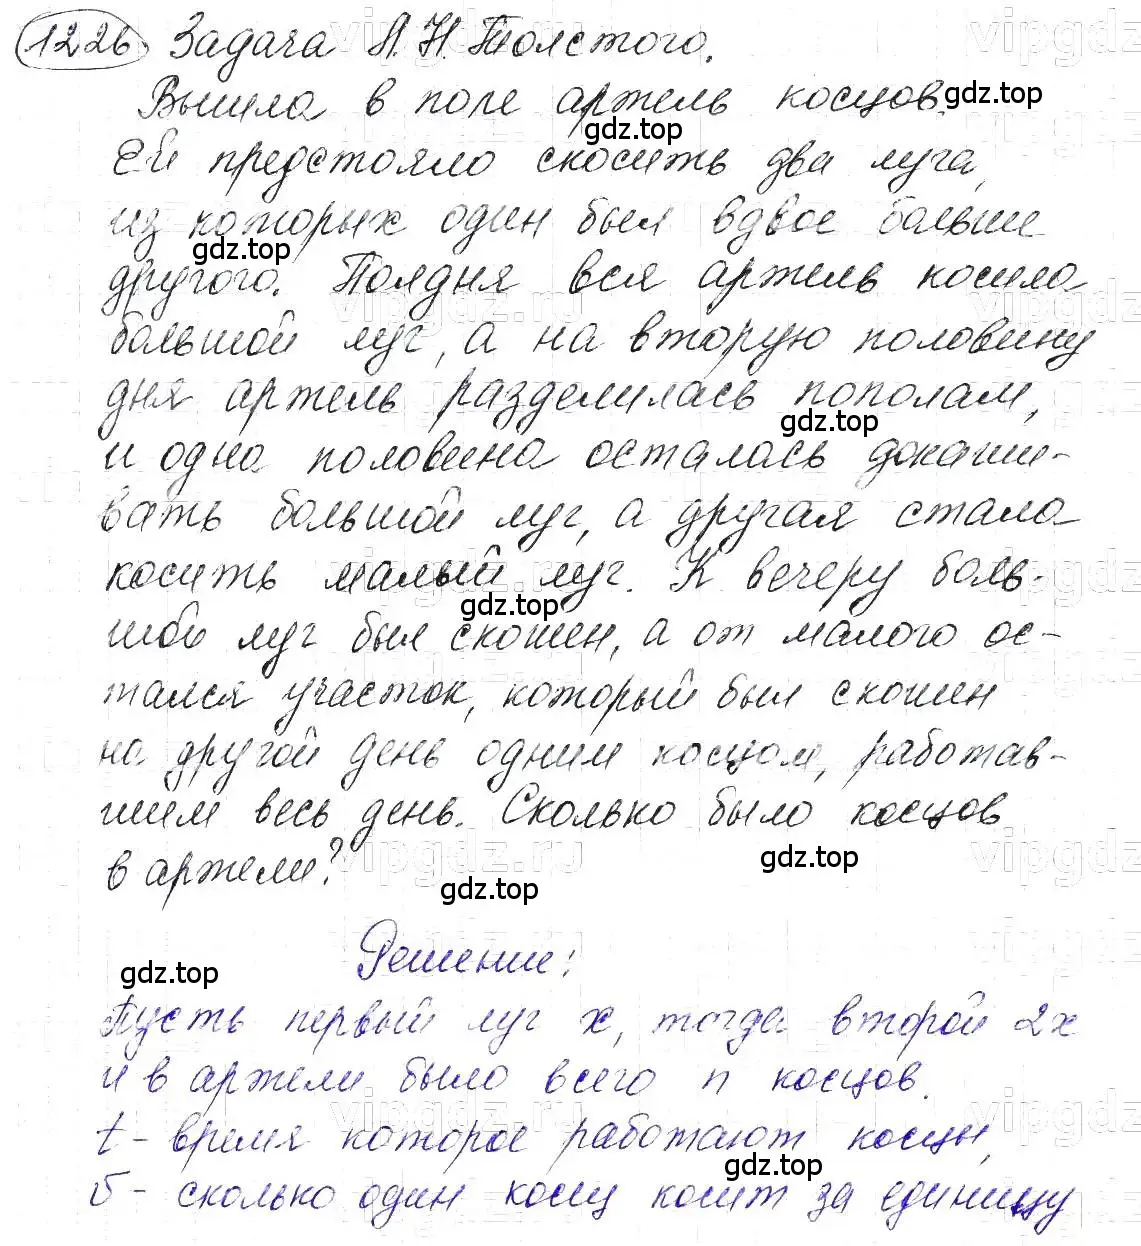 1226. Задача Л.Н.Толстого.
Вышла в поле артель косцов.
Ей предстояло скосить два луга,
из которых один был вдвое больше
другого. Полдня вся артель косила
большой луг, а на вторую половину
дня артель разделилась пополам,
и одна половина осталась докаши-
вать большой луг, а другая стала
косить малый луг. К вечеру боль-
шой луг был скошен, а от малого ос-
тался участок, который был скошен
на другой день одним косцом, работав-
шим весь день. Сколько было косцов
в артели?
Решение:
Пусть первый луг x, тогда второй 2x
и в артели было всего n косцов.
t - время которое работают косцы,
б - сколько один косц косит за единицу
gdz.top
gdz.top
gdz.top
gdz.top
gdz.top
gdz.top
gdz.top
gdz.top
gdz.top
vipgdz.ru
vipgdz.ru
vipgdz.ru
vipgdz.ru